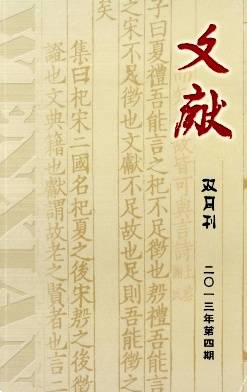 文献
双月刊
二〇一三年第四期
故皆可與言詩
子曰夏禮吾能言之杞不足徵也殷禮吾能言
之宋不足徵也文獻不足故也足則吾能徵
矣
集曰杞宋二國名杞夏之後宋殷之後徵
證也文典籍也獻謂故老之賢者也言二
WENXIAN